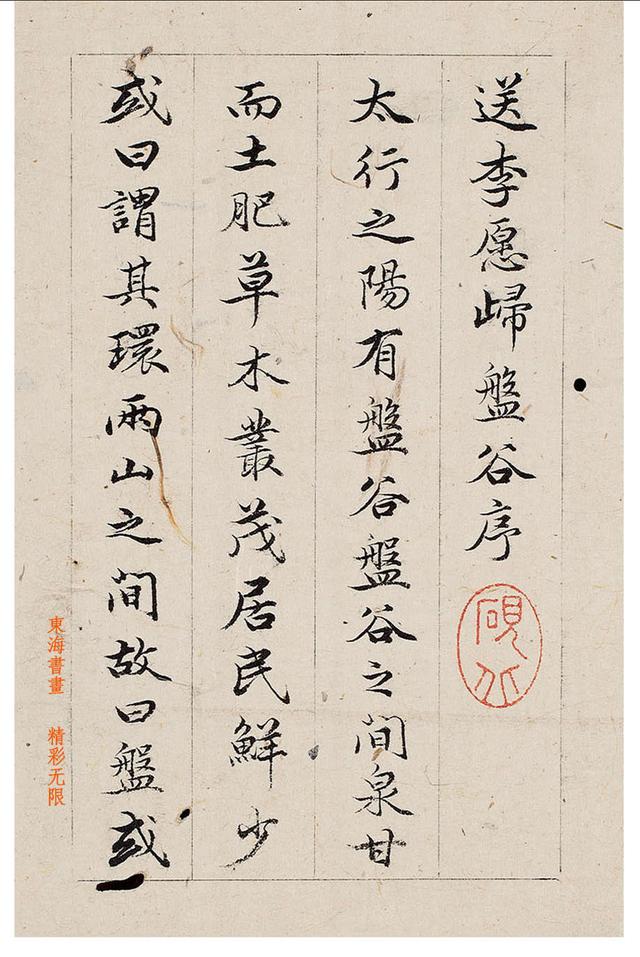 送李愿歸盤谷序
太行之陽有盤谷盤谷之間泉甘
而土肥草木叢茂居民鮮少
或曰謂其環兩山之間故曰盤或
硯北
東海書畫 精彩无限